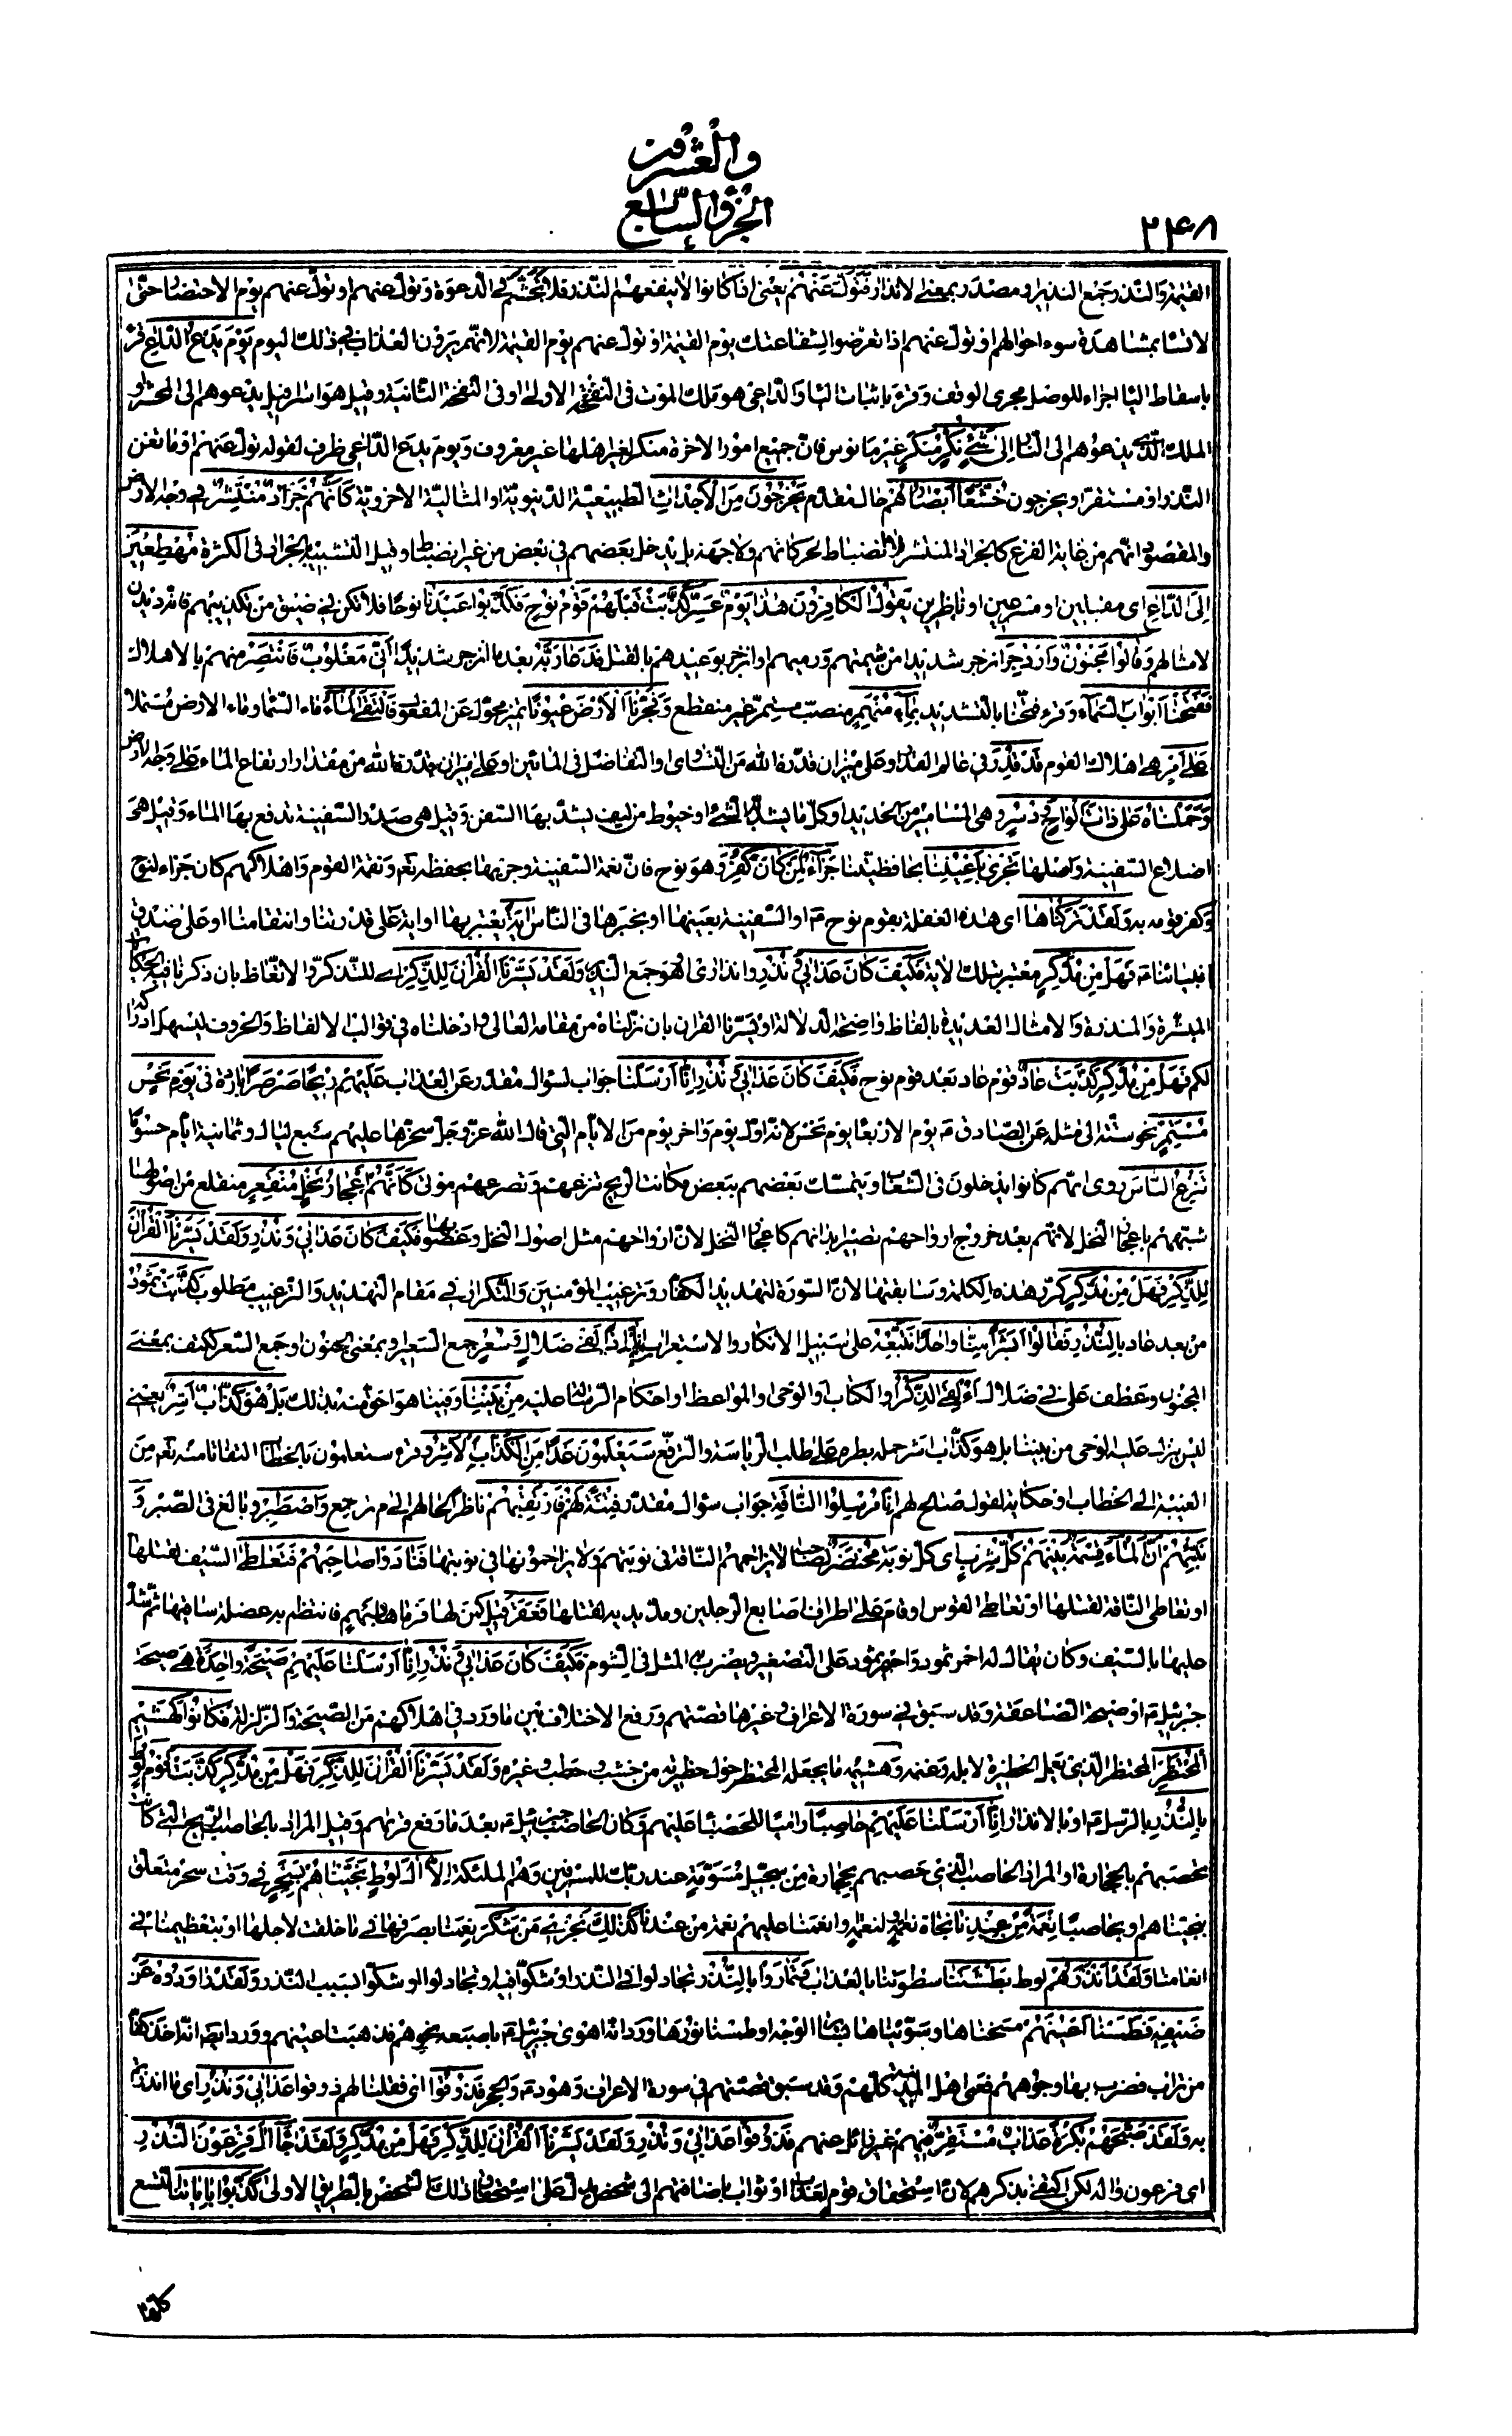 والعشرون
الجزؤ السابع
٢٤٨
القيمة والنذر جمع النذير او مصدر بمعنى الانذار فَتَوَلَّ عَنْهُمْ يعنى اذا كانوا لا ينفعهم النذر فلا تجشم فى الدعوة وتول عنهم او تول عنهم يوم الاحتضار حتى
لا تشاهد سوء احوالهم او تول عنهم اذا تعرضوا لشفاعتك يوم القيمة او تول عنهم يوم القيمة لانهم يرون العذاب فى ذلك اليوم يَوْمَ يَدْعُ الدَّاعِ قرئ
باسقاط اليا اجراء للوصل مجرى الوقف وقرئ باثبات اليا والداعى هو ملك الموت فى النفخة الاولى او فى النفخة الثانية وقيل هو اسرافيل يدعوهم الى المحشر او
الملك الذى يدعوهم الى النار اِلىٰ شَيْءٍ نُكُرٍ منكر غير مانوس فان جميع امور الاخرة منكر لغير اهلها غير معروف ويوم يدع الداعى ظرف لقوله تول عنهم او ما تغن
النذر او مستقر او يخرجون خُشَّعًا اَبْصَارُهُمْ حال مقدم يَخْرُجُونَ مِنَ الْاَجْدَاثِ الطبيعية الدنيوية او المثالية الاخروية كَاَنَّهُمْ جَرَادٌ مُنْتَشِرٌ فى وجه الارض
والمقصود انهم من غاية الفزع كالجراد المنتشر لا انضباط لحركاتهم ولا جهة بل يدخل بعضهم فى بعض من غير انضباط وقيل التشبيه بالجراد فى الكثرة مُهْطِعِينَ
اِلَى الدَّاعِ اى مقبلين او مسرعين او ناظرين يَقُولُ الْكَافِرُونَ هٰذَا يَوْمٌ عَسِرٌ كَذَّبَتْ قَبْلَهُمْ قَوْمُ نُوحٍ فَكَذَّبُوا عَبْدَنَا نوحا فلا تكن فى ضيق من تكذيبهم فانه ديدن
لامثالهم وَقَالُوا مَجْنُونٌ وَازْدُجِرَ انزجر شديدا من شيمتهم ورميهم او انزجر بوعيدهم بالقتل فَدَعَا رَبَّهُ بعد ما انزجر شديدا اَنِّى مَغْلُوبٌ فَانْتَصِرْ منهم بالاهلاك
فَفَتَحْنَا اَبْوَابَ السَّمَاءِ وقرئ فتّحنا بالتشديد بِمَاءٍ مُنْهَمِرٍ منصب مستمر غير منقطع وَفَجَّرْنَا الْاَرْضَ عُيُونًا تميز محول عن المفعول فَالْتَقَى الْمَاءُ ماء السماء وماء الارض مشتملا
عَلىٰ اَمْرٍ هى اهلاك القوم قَدْ قُدِرَ فى عالم القدر او على ميزان قدره الله من التساوى او التفاضل فى المائين او على ميزان قدره الله من مقدار ارتفاع الماء على وجه الارض
وَحَمَلْنَاهُ عَلىٰ ذَاتِ اَلْوَاحٍ وَدُسُرٍ وهى المسامير من الحديد او كل ما يشد به الشئ او خيوط من ليف يشد بها السفن وقيل هى صدر السفينة تدفع بها الماء وقيل هى
اضلاع السفينة واصلها تَجْرِى بِاَعْيُنِنَا بحافظيتنا جَزَاءً لِمَنْ كَانَ كُفِرَ وهو نوح فان نعمة السفينة وجريها بحفظه تعم ونقمة القوم واهلاكهم كان جزاء لنوح
وكفر قومه به وَلَقَدْ تَرَكْنَاهَا اى هذه الفعلة بقوم نوح ع او السفينة بعينها او بخبرها فى الناس اٰيَةً يعتبر بها او اية على قدرتنا وانتقامنا او على صدق
انبيائنا ع فَهَلْ مِنْ مُدَّكِرٍ معتبر بتلك الاية فَكَيْفَ كَانَ عَذَابِى وَنُذُرِ وانذارى او هو جمع النذير وَلَقَدْ يَسَّرْنَا الْقُرْاٰنَ لِلذِّكْرِ اى للتذكر والاتعاظ بان ذكرنا فيه الحكايات
المبشرة والمنذرة والامثال العديدة بالفاظ واضحة الدلالة او يسرنا القران بان نزلناه من مقامه العالى وادخلناه فى قوالب الالفاظ والحروف ليسهل ادراكه
لكم فَهَلْ مِنْ مُدَّكِرٍ كَذَّبَتْ عَادٌ قوم عاد بعد قوم نوح فَكَيْفَ كَانَ عَذَابِى وَنُذُرِ اِنَّا اَرْسَلْنَا جواب لسؤال مقدر عن العذاب عَلَيْهِمْ رِيحًا صَرْصَرًا باردة فِى يَوْمِ نَحْسٍ
مُسْتَمِرٍّ نحوسته الى مثله عن الصادق ع يوم الاربعا يوم نحس لانه اول يوم واخر يوم من الايام التى قال الله عز وجل سخرها عليهم سبع ليال وثمانية ايام حسوما
تَنْزِعُ النَّاسَ روى انهم كانوا يدخلون فى الشعاب ويتمسك بعضهم ببعض فكانت الريح تنزعهم وتصرعهم موتى كَاَنَّهُمْ اَعْجَازُ نَخْلٍ مُنْقَعِرٍ منقلع من اصولها
شبههم باعجاز النخل لانهم بعد خروج ارواحهم تصير ابدانهم كاعجاز النخل لان ارواحهم مثل اصول النخل وغصونها فَكَيْفَ كَانَ عَذَابِى وَنُذُرِ وَلَقَدْ يَسَّرْنَا الْقُرْاٰنَ
لِلذِّكْرِ فَهَلْ مِنْ مُدَّكِرٍ كرر هذه الكلمة وسابقتها لان السورة لتهديد الكفار وترغيب المؤمنين والتكرار فى مقام التهديد والترغيب مطلوب كَذَّبَتْ ثَمُودُ
من بعد عاد بِالنُّذُرِ فَقَالُوا اَبَشَرًا مِنَّا وَاحِدًا نَتَّبِعُهُ على سبيل الانكار والاستغراب اِنَّا اِذًا لَفِى ضَلَالٍ وَسُعُرٍ جمع السعير او بمعنى الجنون او جمع السعر ككتف بمعنى
المجنون وعطف على فى ضلال ءَاُلْقِىَ الذِّكْرُ او الكتاب او الوحى والمواعظ او احكام الرسالة عليه مِنْ بَيْنِنَا وفينا هو احق منه بذلك بَلْ هُوَ كَذَّابٌ اَشِرٌ يعنى
ليس ينزل عليه الوحى من بيننا بل هو كذاب اشر حمله بطره على طلب الرياسة والترفع سَيَعْلَمُونَ غَدًا مَنِ الْكَذَّابُ الْاَشِرُ وقرئ ستعلمون بالخطاب التفاتا منه تعم من
الغيبة الى الخطاب او حكاية لقول صالح لهم اِنَّا مُرْسِلُوا النَّاقَةِ جواب سؤال مقدر فِتْنَةً لَهُمْ فَارْتَقِبْهُمْ ناظرا لحالهم الى م نرجع وَاصْطَبِرْ وبالغ فى الصبر وَ
نَبِّئْهُمْ اَنَّ الْمَاءَ قِسْمَةٌ بَيْنَهُمْ كُلُّ شِرْبٍ اى كل نوبة مُحْتَضَرٌ لصاحبه لا يزاحمهم الناقة فى نوبتهم ولا يزاحمونها فى نوبتها فَنَادَوْا صَاحِبَهُمْ فَتَعَاطىٰ السيف لقتلها
او تعاطى الناقة لقتلها او تعاطى القوس او قام على اطراف اصابع الرجلين ومد يديه لقتلها فَعَقَرَ قيل كمن لها فرماها بسهم فانتظم به عضلة ساقها ثم شد
عليها بالسيف وكان يقال له احمر ثمود واحيمر ثمود على التصغير ويضرب المثل فى الشوم فَكَيْفَ كَانَ عَذَابِى وَنُذُرِ اِنَّا اَرْسَلْنَا عَلَيْهِمْ صَيْحَةً وَاحِدَةً هى صيحة
جبرئيل ع او صيحة الصاعقة وقد سبق فى سورة الاعراف وغيرها قصتهم ورفع الاختلاف بين ما ورد فى اهلاكهم من الصيحة والزلزلة فَكَانُوا كَهَشِيمِ
الْمُحْتَظِرِ المحتظر الذى يعمل الحظيرة لابله وغنمه وهشيمه ما يجعله المحتظر حول حظيرته من خشب وحطب وغيره وَلَقَدْ يَسَّرْنَا الْقُرْاٰنَ لِلذِّكْرِ فَهَلْ مِنْ مُدَّكِرٍ كَذَّبَتْ قَوْمُ لُوطٍ
بِالنُّذُرِ بالرسل ع او بالانذار اِنَّا اَرْسَلْنَا عَلَيْهِمْ حَاصِبًا راميا للحصباء عليهم وكان الحاصب جبرئيل ع بعد ما رفع قريتهم وقيل المراد بالحاصب الريح التى كانت
تحصبهم بالحجارة او المراد الحاصب الذى حصبهم بحجارة من سجيل مسومة عند ربك للمسرفين وهم الملئكة اِلَّا اٰلَ لُوطٍ نَجَّيْنَاهُمْ بِسَحَرٍ فى وقت سحر متعلق
بنجيناهم او بحاصبا نِعْمَةً مِنْ عِنْدِنَا نجاة نعمة لنعمة او انعمنا عليهم نعمة من عندنا كَذٰلِكَ نَجْزِى مَنْ شَكَرَ نعمتنا بصرفها فى ما خلقت لاجلها او بتعظيمنا فى
انعامنا وَلَقَدْ اَنْذَرَهُمْ لوط بَطْشَتَنَا سطوتنا بالعذاب فَتَمَارَوْا بِالنُّذُرِ تجادلوا فى النذر او شكوا فيه او تجادلوا او شكوا بسبب النذر وَلَقَدْ رَاوَدُوهُ عَنْ
ضَيْفِهِ فَطَمَسْنَا اَعْيُنَهُمْ مسحناها وسويناها بسائر الوجه او طمسنا نورها ورد انه اهوى جبرئيل ع باصبعه نحوهم فذهبت اعينهم وورد ايضا انه اخذ كفا
من تراب فضرب بها وجوههم فعمى اهل المدينة كلهم وقد سبق قصتهم فى سورة الاعراف وهود ع والحجر فَذُوقُوا اى فقلنا لهم ذوقوا عَذَابِى وَنُذُرِ اى ما انذرتم
به وَلَقَدْ صَبَّحَهُمْ بُكْرَةً عَذَابٌ مُسْتَقِرٌّ فيهم غير زائل عنهم فَذُوقُوا عَذَابِى وَنُذُرِ وَلَقَدْ يَسَّرْنَا الْقُرْاٰنَ لِلذِّكْرِ فَهَلْ مِنْ مُدَّكِرٍ وَلَقَدْ جَاءَ اٰلَ فِرْعَوْنَ النُّذُرُ
اى فرعون واله لكن اكتفى بذكرهم لان استحقاق قوم لعذاب او ثواب باضافتهم الى شخص يدل على استحقاق ذلك الشخص بالطريق الاولى كَذَّبُوا بِاٰيَاتِنَا التسع
كلها